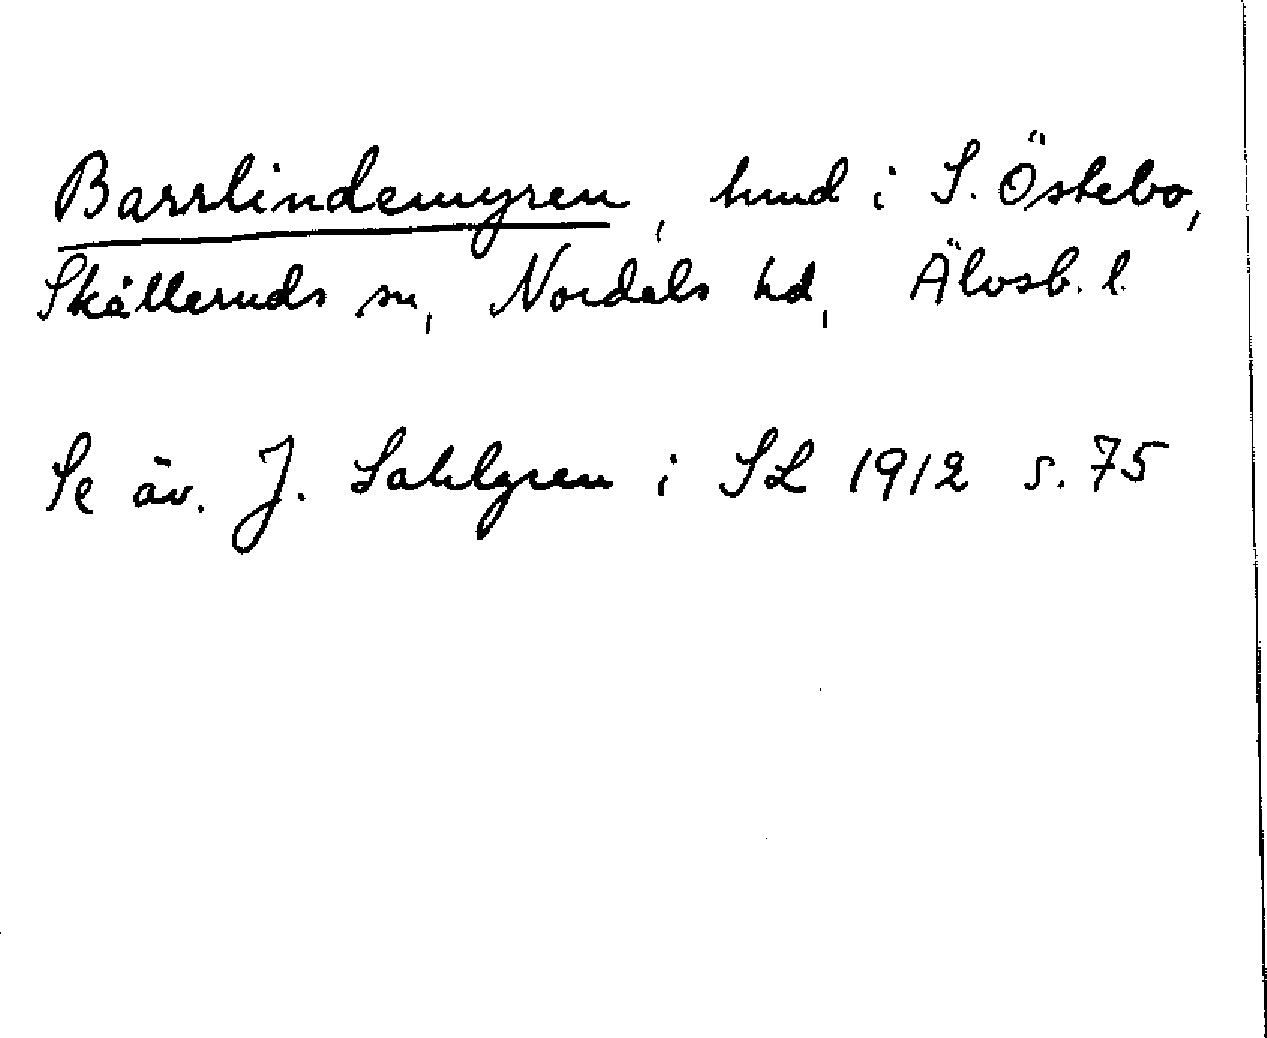 Barrlindemyren, lund i S. Östebo,
Skålleruds sn, Nordals hd, Älvsb. l.
Se äv. J. Sahlgren i SL 1912 s. 75